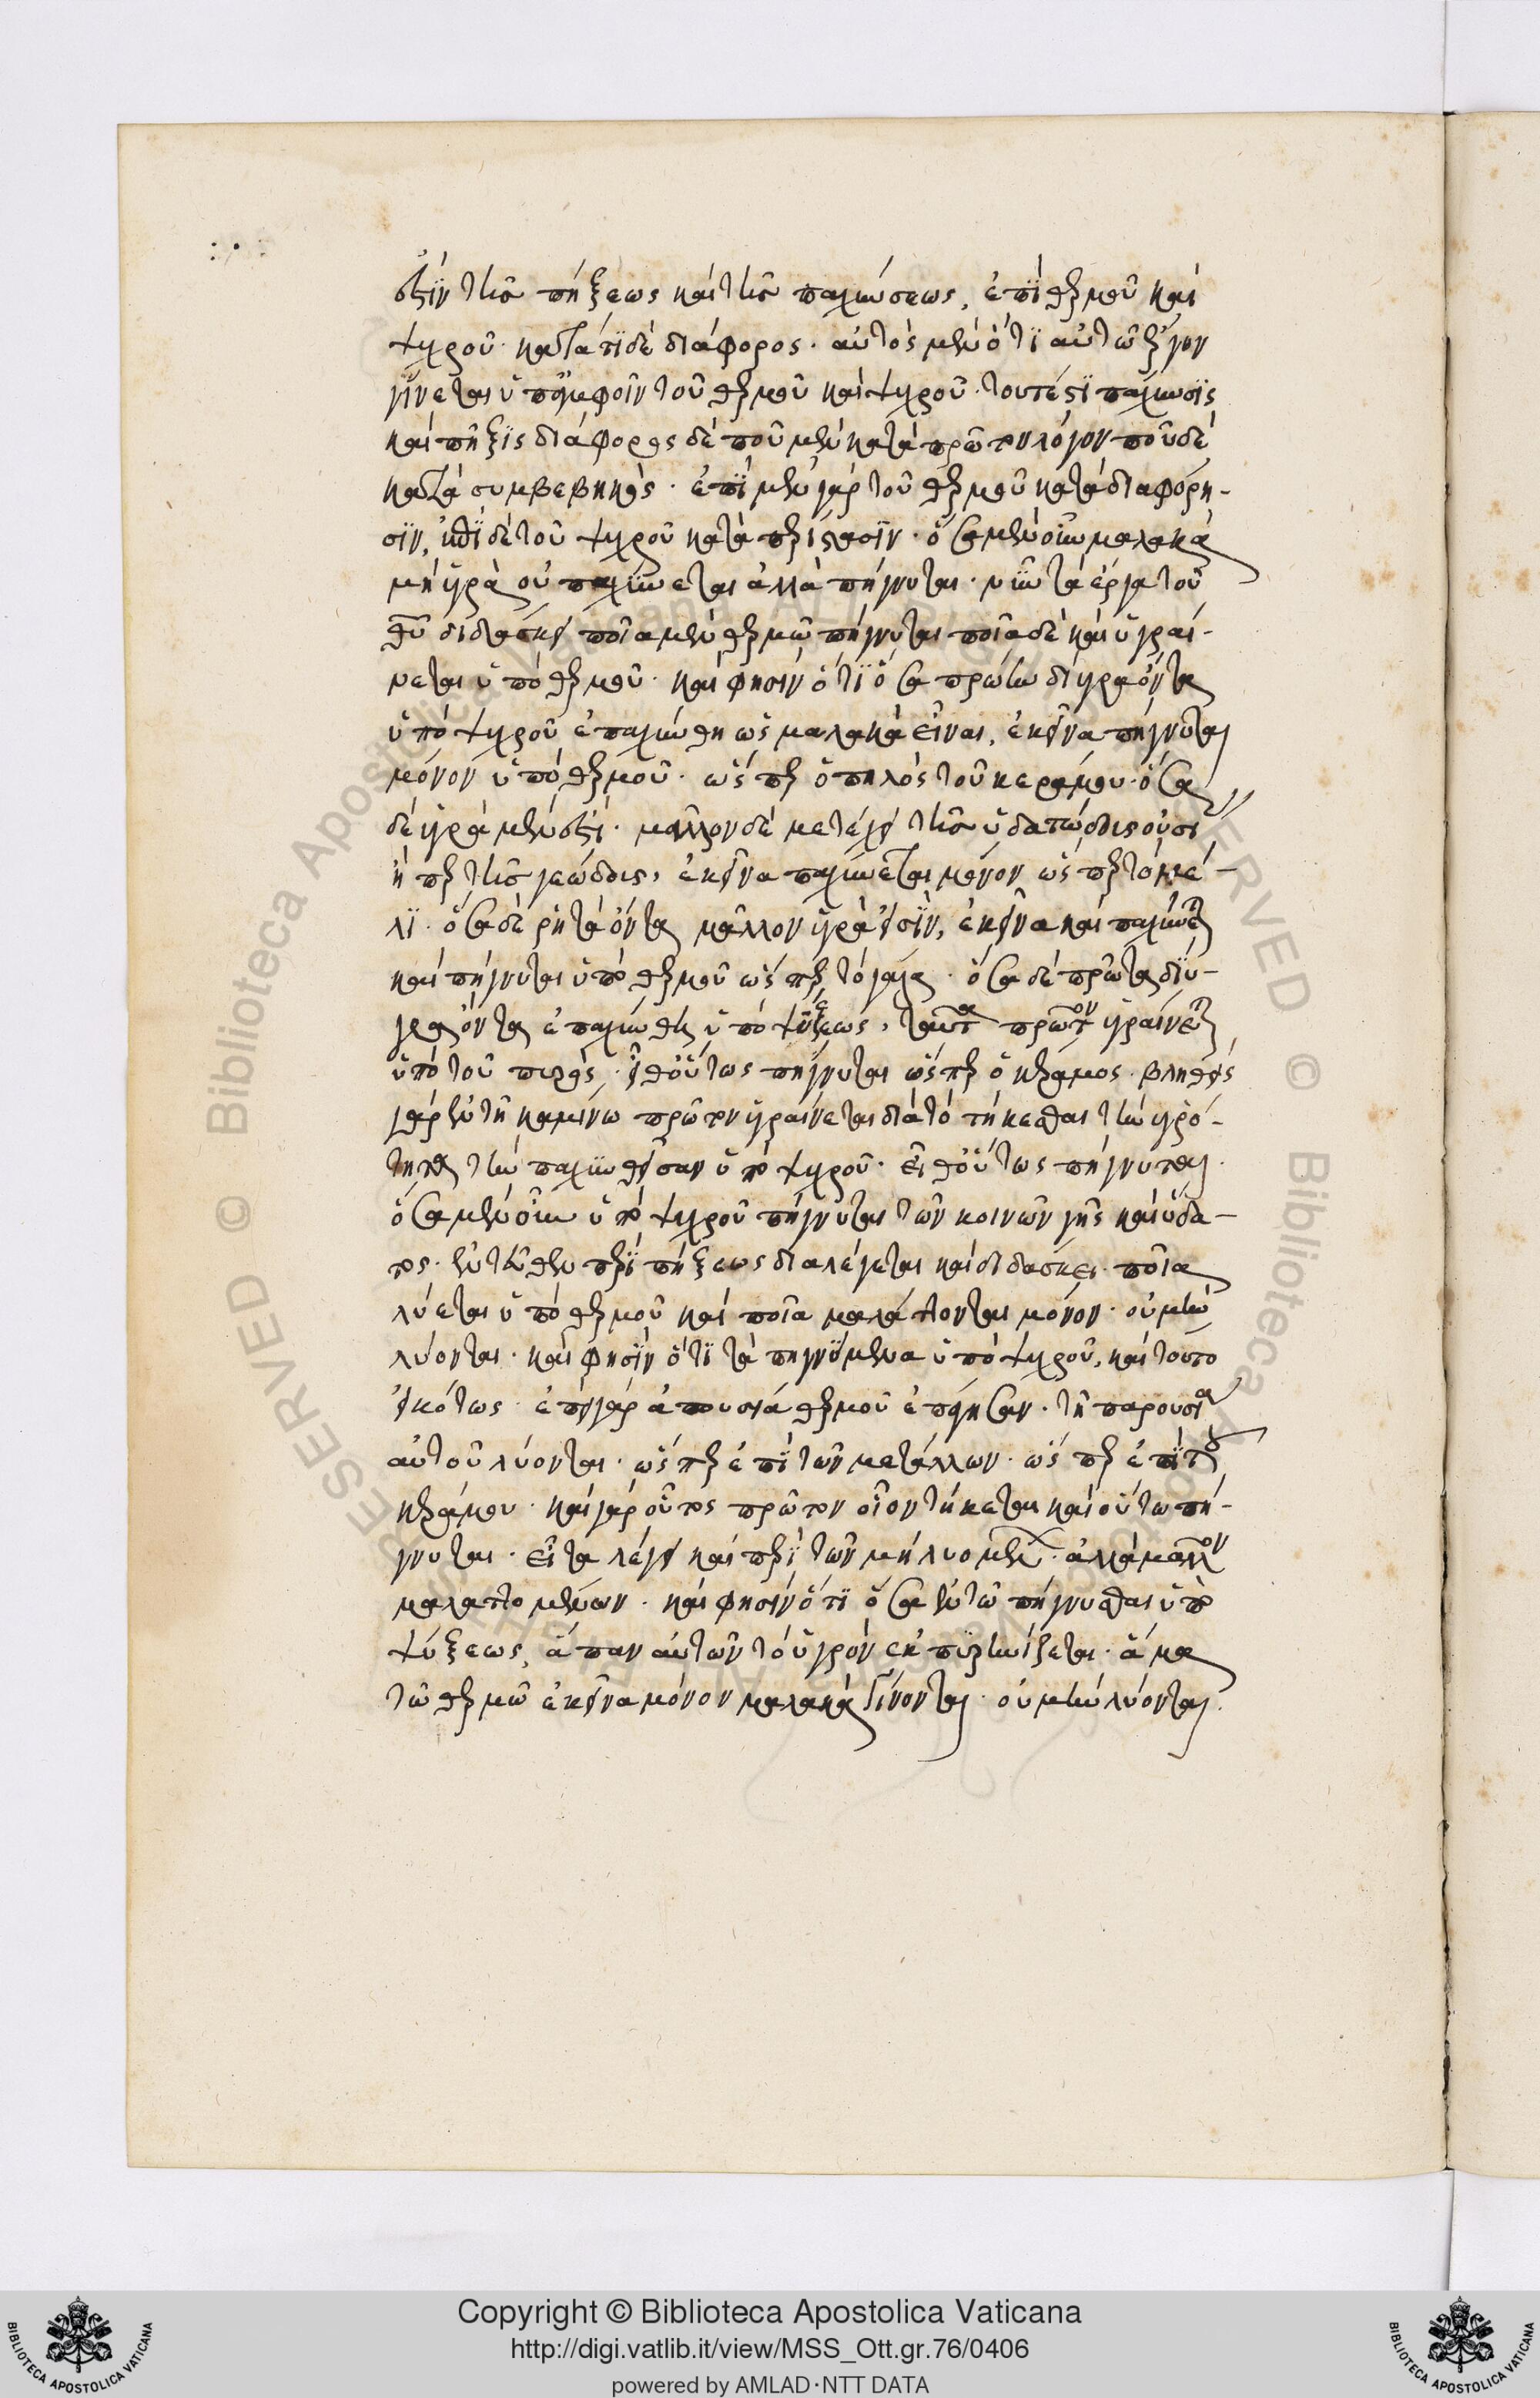 ἐστὶν τῆς πήξεως καὶ τῆς παχύνσεως, ἐπὶ θερμοῦ καὶ
ψυχροῦ. κατά τι δὲ διάφορος. αὐτὸς μὲν ὅτι αὐτῶ ἔργον
γίνεται ὑπ' ἀμφοῖν τοῦ θερμοῦ καὶ ψυχροῦ. τουτέστι πάχυνσις
καὶ πῆξις διάφορος δὲ ποῦ μὲν κατὰ πρῶτον λόγον ποῦ δὲ
κατὰ συμβεβηκὸς. ἐπὶ μὲν γὰρ τοῦ θερμοῦ κατὰ διαφόρη-
σιν, ἐπὶ δὲ τοῦ ψυχροῦ κατὰ περίστασιν. ὅσα μὲν οὖν μαλακὰ
μὴ ὑγρὰ οὐ παχύνεται ἀλλὰ πήγνυται. νῦν τὰ ἔργα τοῦ
θοῦ διδάσκει ποῖα μὲν θερμῶ πήγνυται ποῖα δὲ καὶ ὑγραί-
νεται ὑπὸ θερμοῦ. καὶ φησὶν ὅτι ὅσα πρώτω δίυγρα ὄντα
ὑπὸ ψυχροῦ ἐπαχύνθη ὡς μαλακὰ εἶναι, ἐκεῖνα πήγνυται
μόνον ὑπὸ θερμοῦ. ὥσπερ ὁ πηλὸς τοῦ κεράμου. ὅσα
δὲ ὑγρὰ μὲν ἐστὶ. μᾶλλον δὲ μετέχει τῆς ὑδατώδους οὐσί
ἤπερ τῆς γεώδους, ἐκεῖνα παχύνεται μόνον ὥσπερ τὸ μέ-
λι. ὅσα δὲ ῥητὰ ὄντα μᾶλλον ὑγρὰ εἰσὶν, ἐκεῖνα καὶ παχύνεται
καὶ πήγνυται ὑπὸ θερμοῦ ὥσπερ τὸ γάλα. ὅσα δὲ πρῶτα δίυ-
γρα ὄντα ἐπαχύνθη ὑπὸ ψύξεως, ταῦτα πρῶτον ὑγραίνεται
ὑπὸ τοῦ πυρὸς. εἶθ' οὕτως πήγνυται ὥσπερ ὁ κέραμος. βληθεὶς
γὰρ ἐν τῆ καμίνω πρῶτον ὑγραίνεται διὰ τὸ τήκεσθαι τὴν ὑγρό-
τητα τὴν παχυνθεῖσαν ὑπὸ ψυχροῦ. εἶθ' οὕτως πήγνυται.
ὅσα μὲν οὖν ὑπὸ ψυχροῦ πήγνυται τῶν κοινῶν γῆς καὶ ὕδα-
τος. ἐντεῦθεν περὶ πήξεως διαλέγεται καὶ διδάσκει. ποῖα
λύεται ὑπὸ θερμοῦ καὶ ποῖα μαλάττονται μόνον. οὐ μὴν
λύονται. καὶ φησὶν ὅτι τὰ πηγνύμενα ὑπὸ ψυχροῦ, καὶ τοῦτο
εἰκότως. ἐπεὶ γὰρ ἀπουσία θερμοῦ ἐπάγησαν. τῆ παρουσία
αὐτοῦ λύονται. ὥσπερ ἐπὶ τῶν μετάλλων. ὥσπερ ἐπὶ τοῦ
κεράμου. καὶ γὰρ οὗτος πρῶτον οἷον τήκεται καὶ οὕτω πή-
γνυται. εἶτα λέγει καὶ περὶ τῶν μὴ λυομένων. ἀλλὰ μᾶλλον
μαλαττομένων. καὶ φησὶν ὅτι ὅσα ἐν τῶ πήγνυσθαι ὑπὸ
ψύξεως, ἅπαν αὐτῶν τὸ ὑγρὸν ἐκπυρηνίζεται. ἅμα
τῶ θερμῶ ἐκεῖνα μόνον μαλακὰ γίνονται. οὐ μὴν λύονται.
Copyright © Biblioteca Apostolica Vaticana
http://digi.vatlib.it/view/MSS_Ott.gr.76/0406
powered by AMLAD·NTT DATA